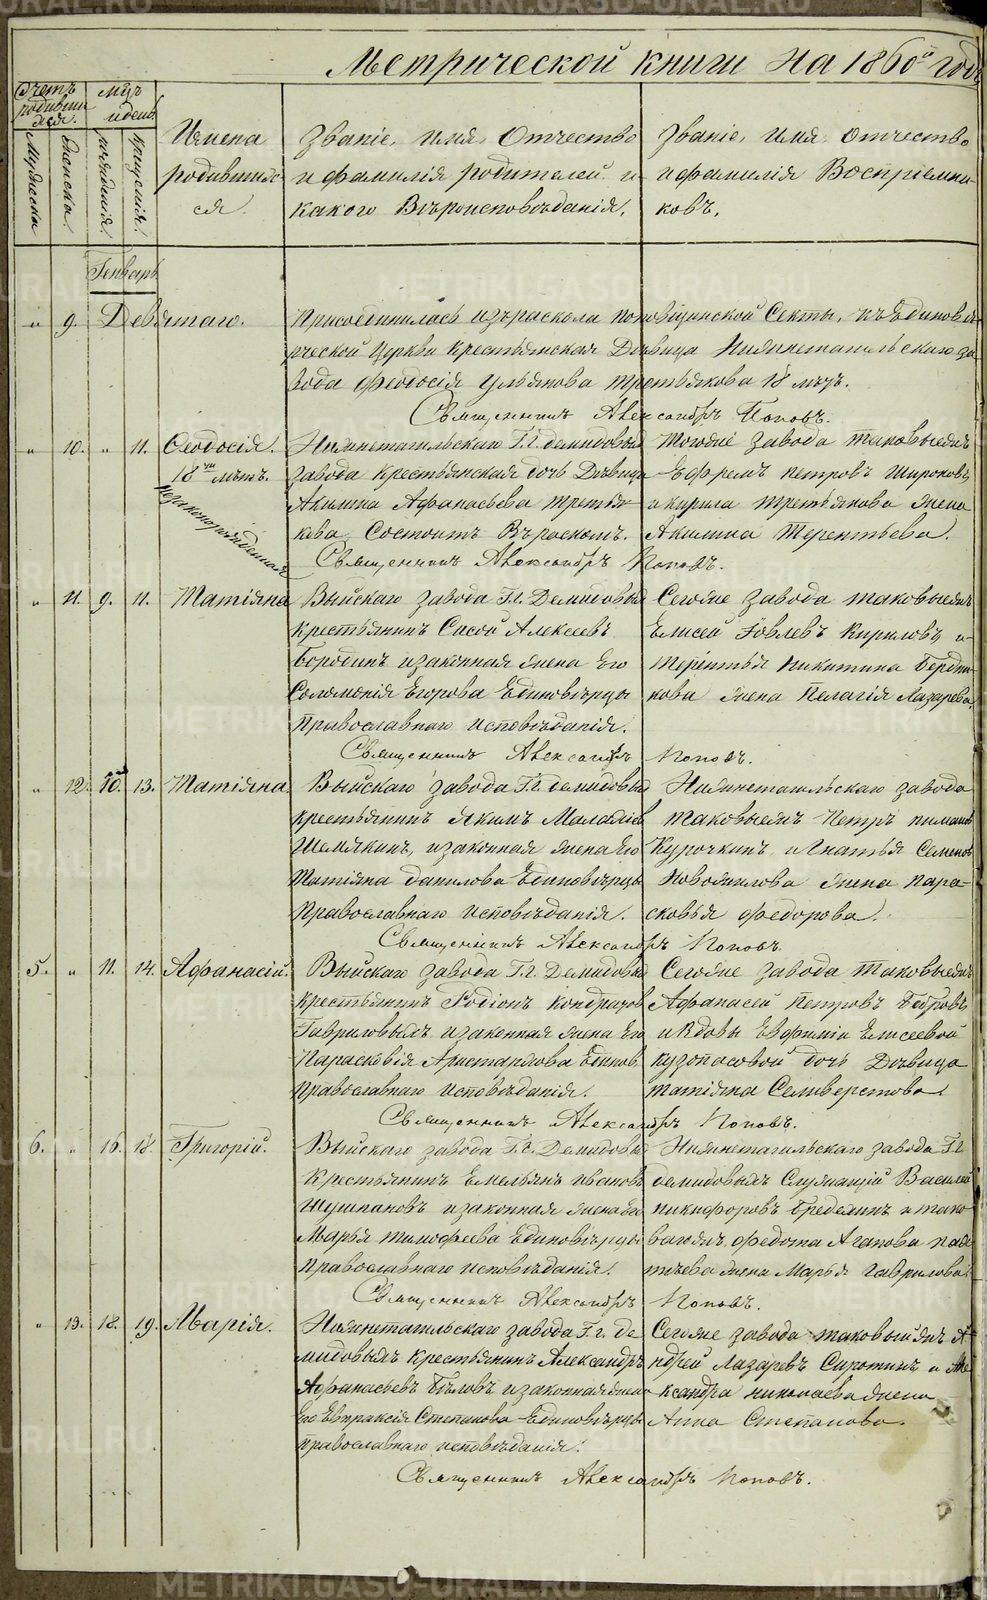 Метрической книги на 1860й годъ
Счетъ родившихся.
Мужеска
Женска.
Мѣсяцъ и день
рожденія.
крещенія.
Имена родившихся.
Званіе, имя, Отчество и фамилія родителей и какого Вѣроисповѣданія.
Званіе, имя, отчество и фамилія Воспріемниковъ.
Генварь
" 9. Девятаго.
Присоединилась изъ раскола поповщинской Секты, къ Единовѣрческой Церкви крестьянская Дѣвица Нижнетагильскаго завода Феодосія Ульянова Третьякова 18 лѣтъ.
Священникъ Александръ Поповъ.
" 10. " 11. Феодосія.
18ти лѣтъ.
незаконорожденная
Нижнетагильскаго Г.г. Демидовыхъ
завода крестьянская дочь Дѣвица
Акилина Афанасьева Третья-
кова Состоитъ Въ расколѣ.
Тогоже завода таковыежъ
Ефремъ Петровъ Широковъ
и Кирила Третьякова жена
Акилина Терентьева.
Священникъ Александръ Поповъ.
" 11. 9. 11. Татіяна
Выйскаго завода Г.г. Демидовыхъ
крестьянинъ Сысой Алексеевъ
Бородинъ и законная жена Его
Соломонія Егорова Единовѣрцы
Православнаго исповѣданія.
Сегоже завода таковыежъ
Елисей Іовлевъ Кириловъ и
Терентья Никитина Бердни-
кова жена Пелагія Лазарева
Священникъ Александръ Поповъ.
" 12. 10. 13. Татіяна
Выйскаго завода Г.г. Демидовыхъ
крестьянинъ Якимъ
Шемякинъ, и законная жена Его
Татіяна Данилова Единовѣрцы
Православнаго исповѣданія.
Нижнетагильскаго завода
таковыежъ Петръ Пимановъ
Курочкинъ и Игнатья Семенова
жена Пара-
сковья Федорова.
Священникъ Александръ Поповъ.
5. " 11. 14. Афанасій.
Выйскаго завода Г.г. Демидовыхъ
крестьянинъ Родіонъ Кондратовъ
Гавриловыхъ и законная жена Его
Параскевія Аристархова Единов.
Православнаго исповѣданія.
Сегоже завода таковыежъ
Афанасей Петровъ
и Вдовы Евфиміи Елисеевой
дочь Дѣвица
Татіяна Селиверстова.
Священникъ Александръ Поповъ.
6. " 16. 18. Григорій.
Выйскаго завода Г.г. Демидовыхъ
Крестьянинъ Емельянъ Ивановъ
Шушпановъ и законная жена Его
Марья Тимофеева Единовѣрцы
Православнаго исповѣданія.
Нижнетагильскаго завода Г.г.
Демидовыхъ Служащій Василей
Никифоровъ и тако-
вагожъ Федота Агапова
жена Марья Гаврилова.
Священникъ Александръ Поповъ.
" 13. 18. 19. Марія.
Нижнетагильскаго завода Г.г. Де-
мидовыхъ крестьянинъ Александръ
Афанасьевъ Бѣловъ и законная жена
Его Евпраксія Степанова Единовѣрцы
Православнаго исповѣданія.
Сегоже завода таковыйжъ А-
ндрей Лазаревъ Сиротинъ и Але-
ксандра Николаева жена
Анна Степанова.
Священникъ Александръ Поповъ.
METRIKI.GASO-URAL.RU